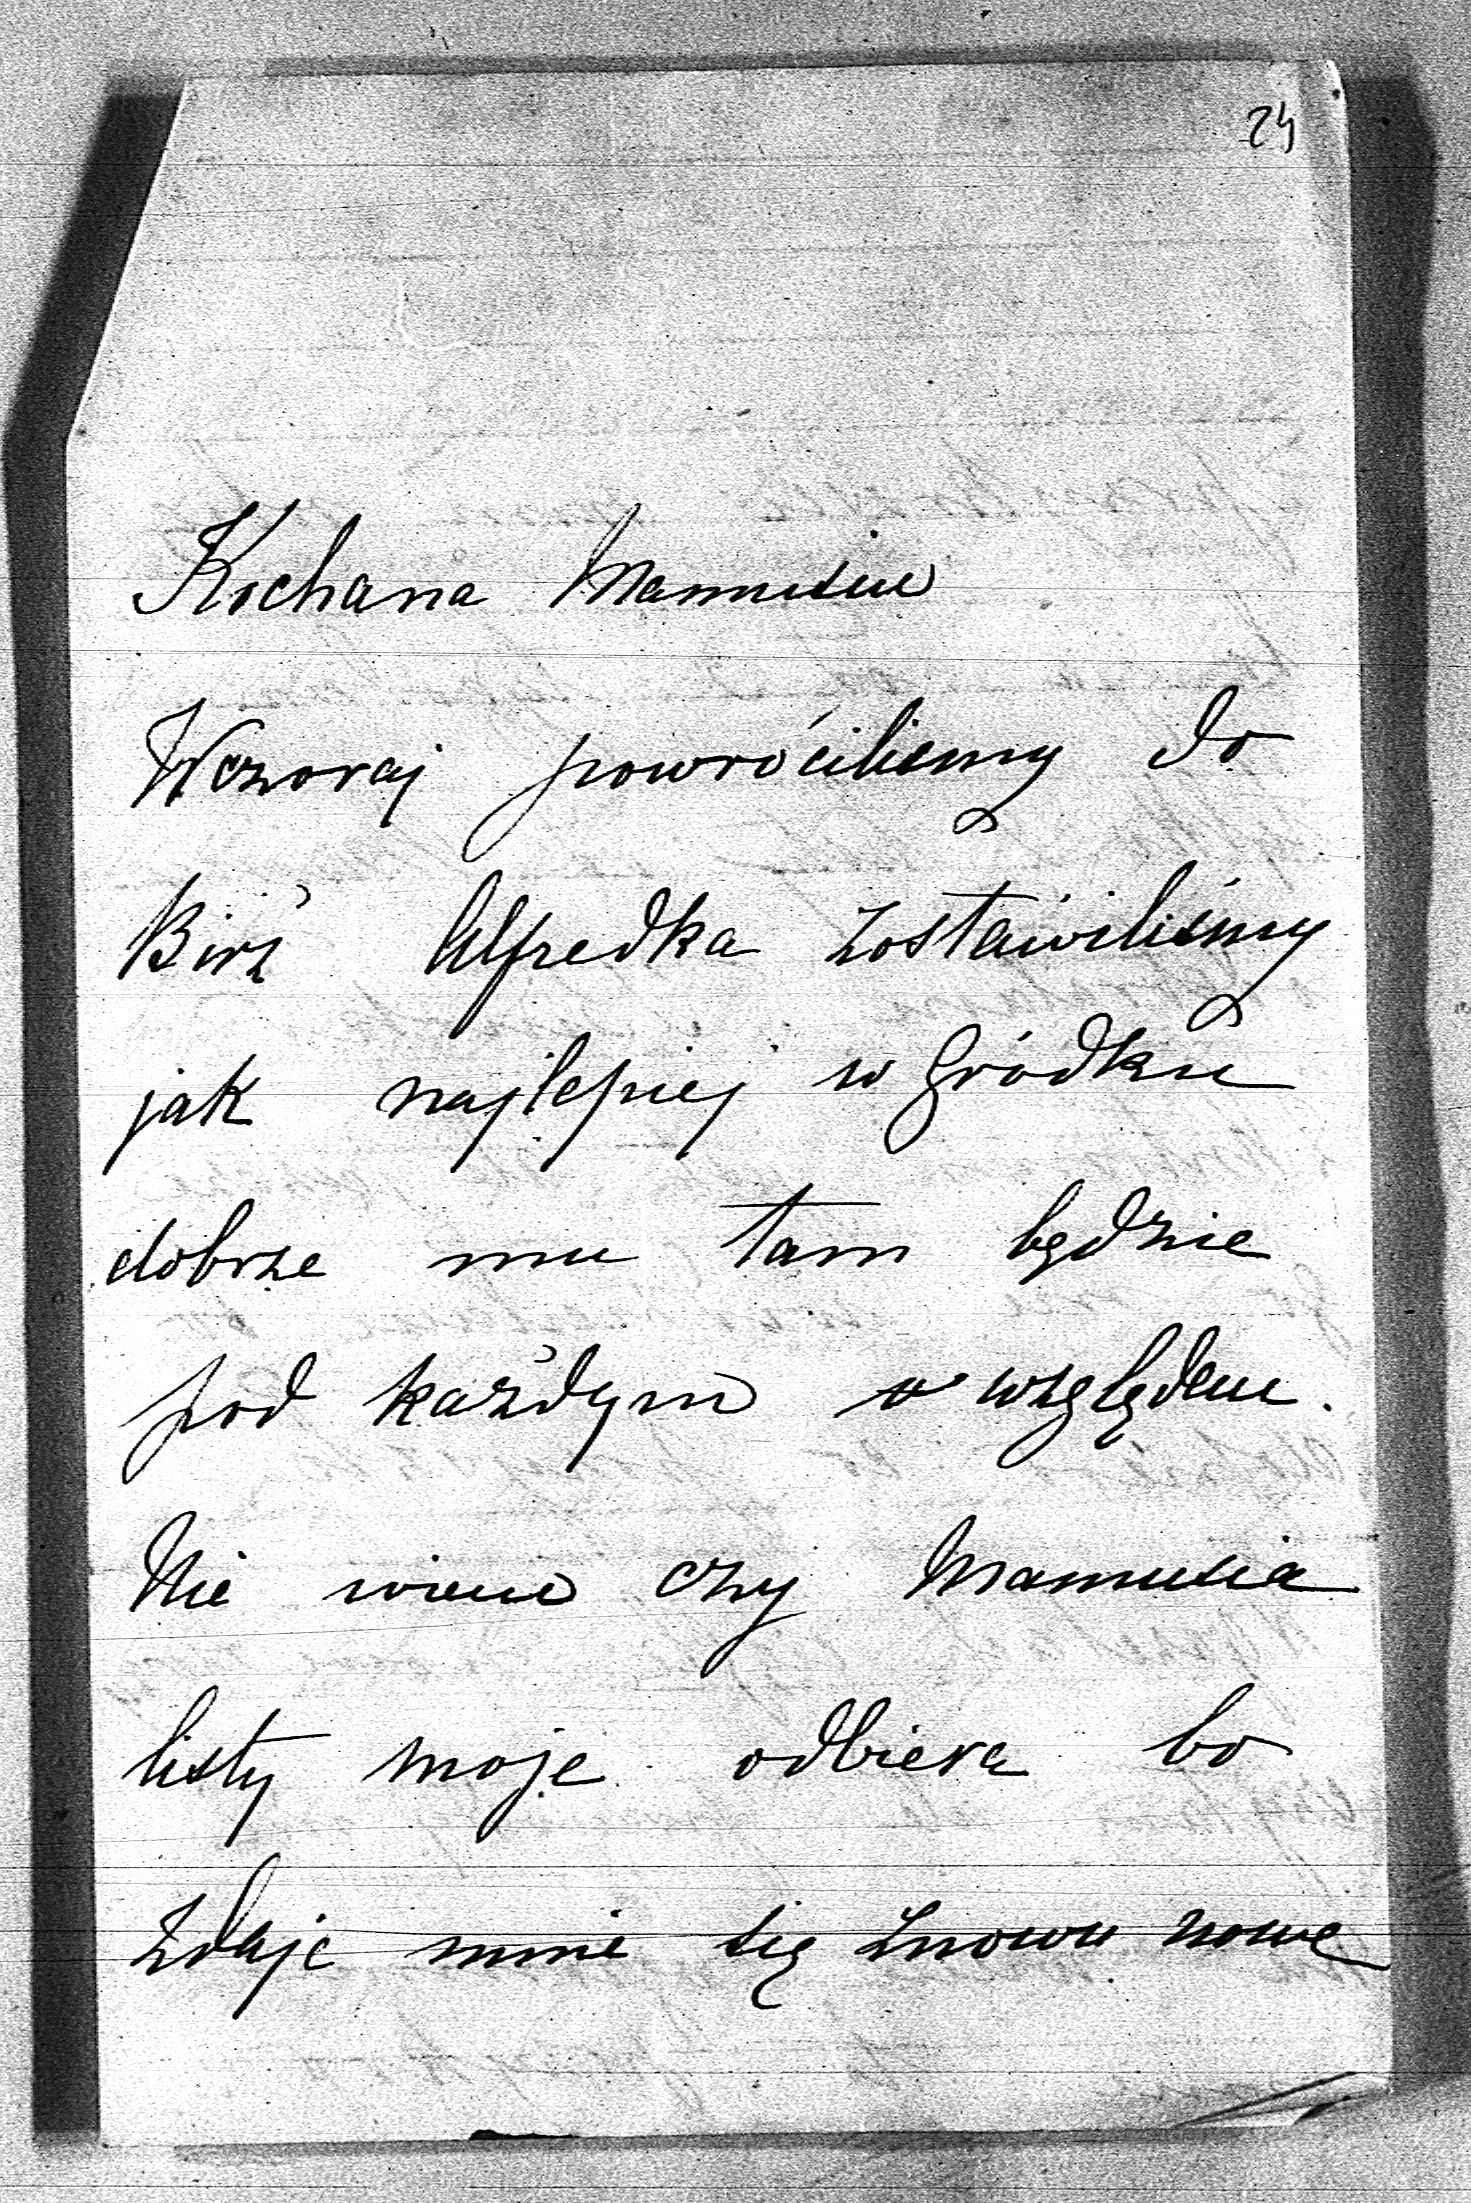 24
Kochana Mamusiu
Wczoraj powróciliśmy do
Birż Alfredka zostawiliśmy
jak najlepiej w Gródku
dobrze mu tam będzie
pod każdym w względem.
Nie wiem czy Mamusia
listy moje odbiera bo
zdaje mnie się znowu nowe